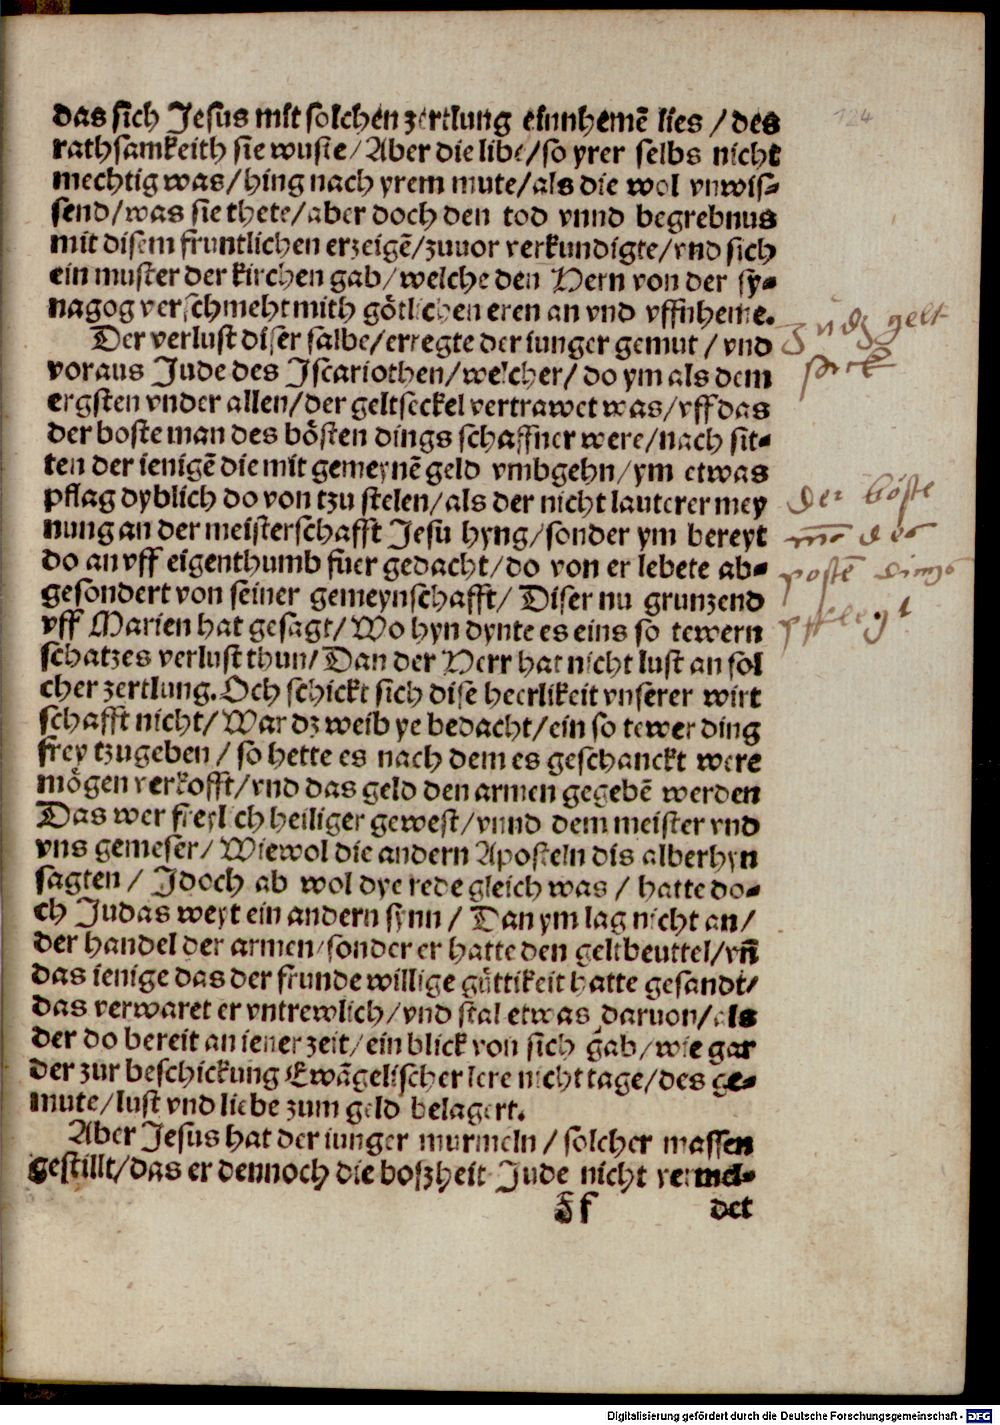 124
das sich Jesus mit solchen zertlung einnhemē lies / des
rathsamkeith sie wuste / Aber die libe / so yrer selbs nicht
mechtig was / hing nach yrem mute / als die wol vnwis-
send / was sie thete / aber doch den tod vnnd begrebnus
mit disem fruntlichen erzeigē / zuuor verkundigte / vnd sich
ein muster der kirchen gab / welche den Hern von der sy-
nagog verschmeht mith götlichen eren an vnd vffnheme.
Der verlust diser salbe / erregte der iunger gemut / vnd
voraus Jude des Iscariothen / welcher / do ym als dem
ergsten vnder allen / der geltseckel vertrawet was / vff das
der boste man des bösten dings schaffner were / nach sit-
ten der ienigē die mit gemeynē geld vmbgehn / ym etwas
pflag dyblich do von tzu stelen / als der nicht lauterer mey
nung an der meisterschafft Jesu hyng / sonder ym bereyt
do an vff eigenthumb fuer gedacht / do von er lebete ab-
gesondert von seiner gemeynschafft / Diser nu grunzend
vff Marien hat gesagt / Wo hyn dynte es eins so tewern
schatzes verlust thun / Dan der Herr hat nicht lust an sol
cher zertlung. Och schickt sich dise heerlikeit vnserer wirt
schafft nicht / War dz weib ye bedacht / ein so tewer ding
frey tzugeben / so hette es nach dem es geschanckt were
mögen verkofft / vnd das geld den armen gegebē werden
Das wer freylich heiliger gewest / vnnd dem meister vnd
vns gemeser / Wiewol die andern Aposteln dis alberhyn
sagten / Jdoch ab wol dye rede gleich was / hatte do-
ch Judas weyt ein andern synn / Dan ym lag nicht an /
der handel der armen / sonder er hatte den geltbeuttel / vn̄
das ienige das der frunde willige güttikeit hatte gesandt /
das verwaret er vntrewlich / vnd stal etwas daruon / als
der do bereit an iener zeit / ein blick von sich gab / wie gar
der zur beschickung Ewāgelischer lere nicht tage / des ge-
mute / lust vnd liebe zum geld belagert.
Aber Jesus hat der iunger murmeln / solcher massen
gestillt / das er dennoch die boßheit Jude nicht vermel-
ff det
Judz gelt
seck
Der böste
mā des
postē dings
pfflegt
Digitalisierung gefördert durch die Deutsche Forschungsgemeinschaft - DFG